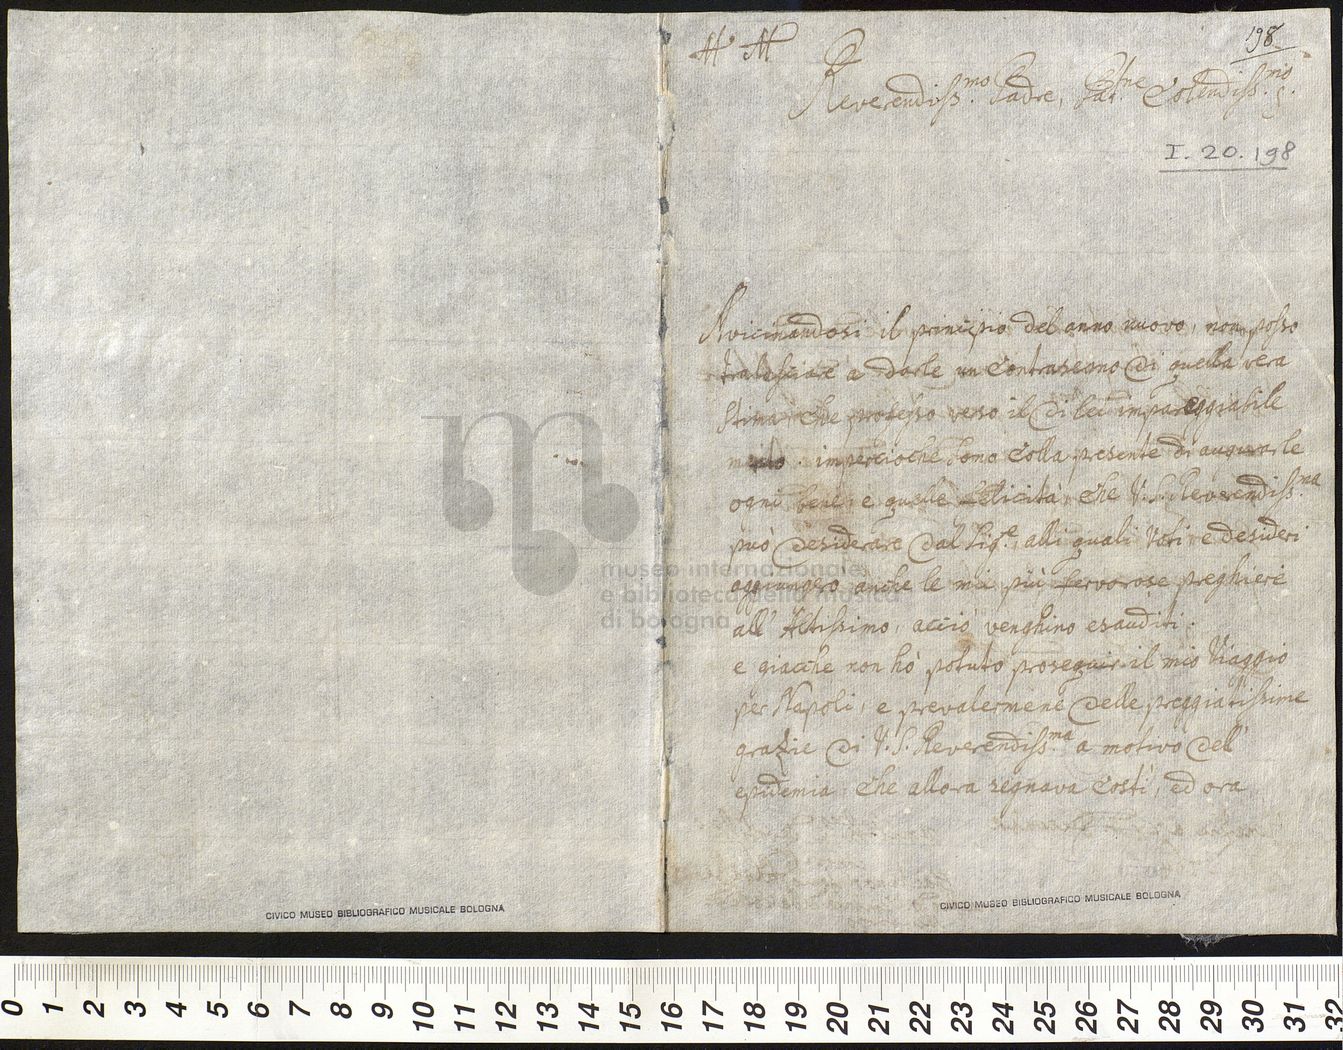 198
Reverendiss.mo Padre, Pat.ne Colendiss.mo
I. 20. 198
Avicinandosi il principio del anno nuovo, non posso
tralasciare a darle un contrasegno di quella vera
stima, che professo verso il di lei impareggiabile
merito. impercioche sono colla presente di augurarle
ogni bene, e quelle felicità, che V. S. Reverendiss.ma
può desiderare dal Sig.e, alli quali Voti e desideri
aggiungero anche le mie più fervorose preghiere
all' Altissimo, acciò venghino esauditi.
e giacche non hò potuto proseguir il mio Viaggio
per Napoli, e prevalermene delle preggiatissime
grazie di V. S. Reverendiss.ma a motivo dell'
epidemia che allora regnava costì, ed ora
museo internazionale
e biblioteca della musica
di bologna
CIVICO MUSEO BIBLIOGRAFICO MUSICALE BOLOGNA
CIVICO MUSEO BIBLIOGRAFICO MUSICALE BOLOGNA
0 1 2 3 4 5 6 7 8 9 10 11 12 13 14 15 16 17 18 19 20 21 22 23 24 25 26 27 28 29 30 31 32